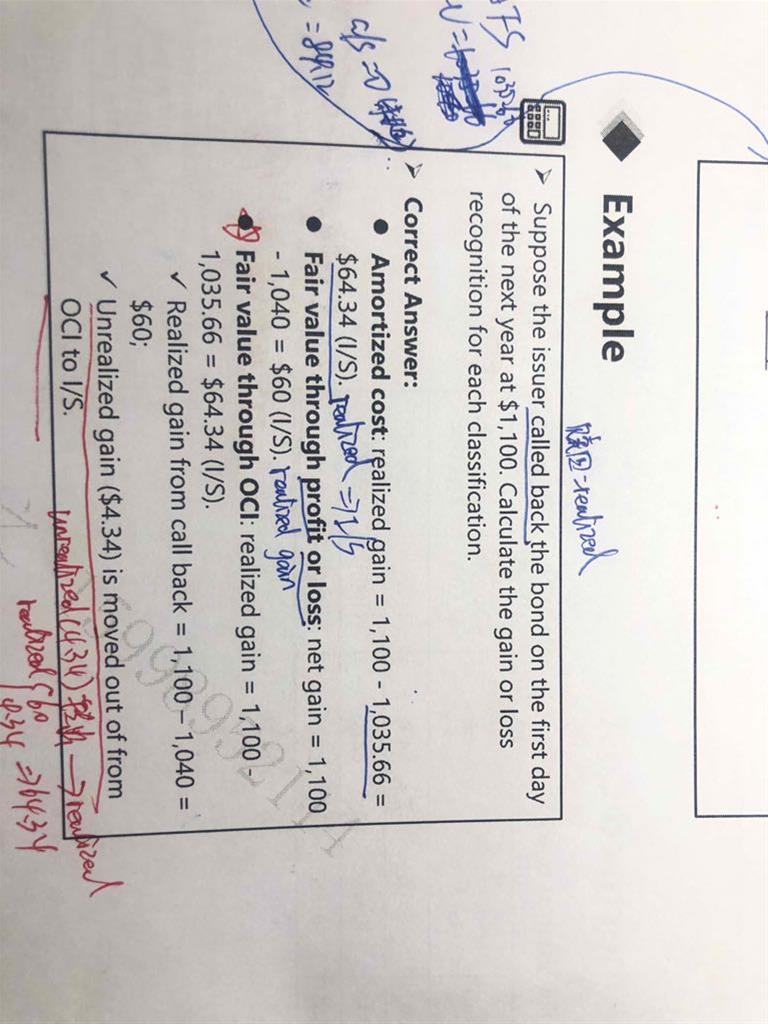 Example
赎回=realized
➤ Suppose the issuer called back the bond on the first day
of the next year at $1,100. Calculate the gain or loss
recognition for each classification.
➤ Correct Answer:
● Amortized cost: realized gain = 1,100 - 1,035.66 =
$64.34 (I/S). realized => I/S
● Fair value through profit or loss: net gain = 1,100
- 1,040 = $60 (I/S). realized gain
● Fair value through OCI: realized gain = 1,100 -
1,035.66 = $64.34 (I/S).
✓ Realized gain from call back = 1,100 – 1,040 =
$60;
✓ Unrealized gain ($4.34) is moved out of from
OCI to I/S.
unrealized (4.34) → realized
realized { 60
4.34 => 64.34